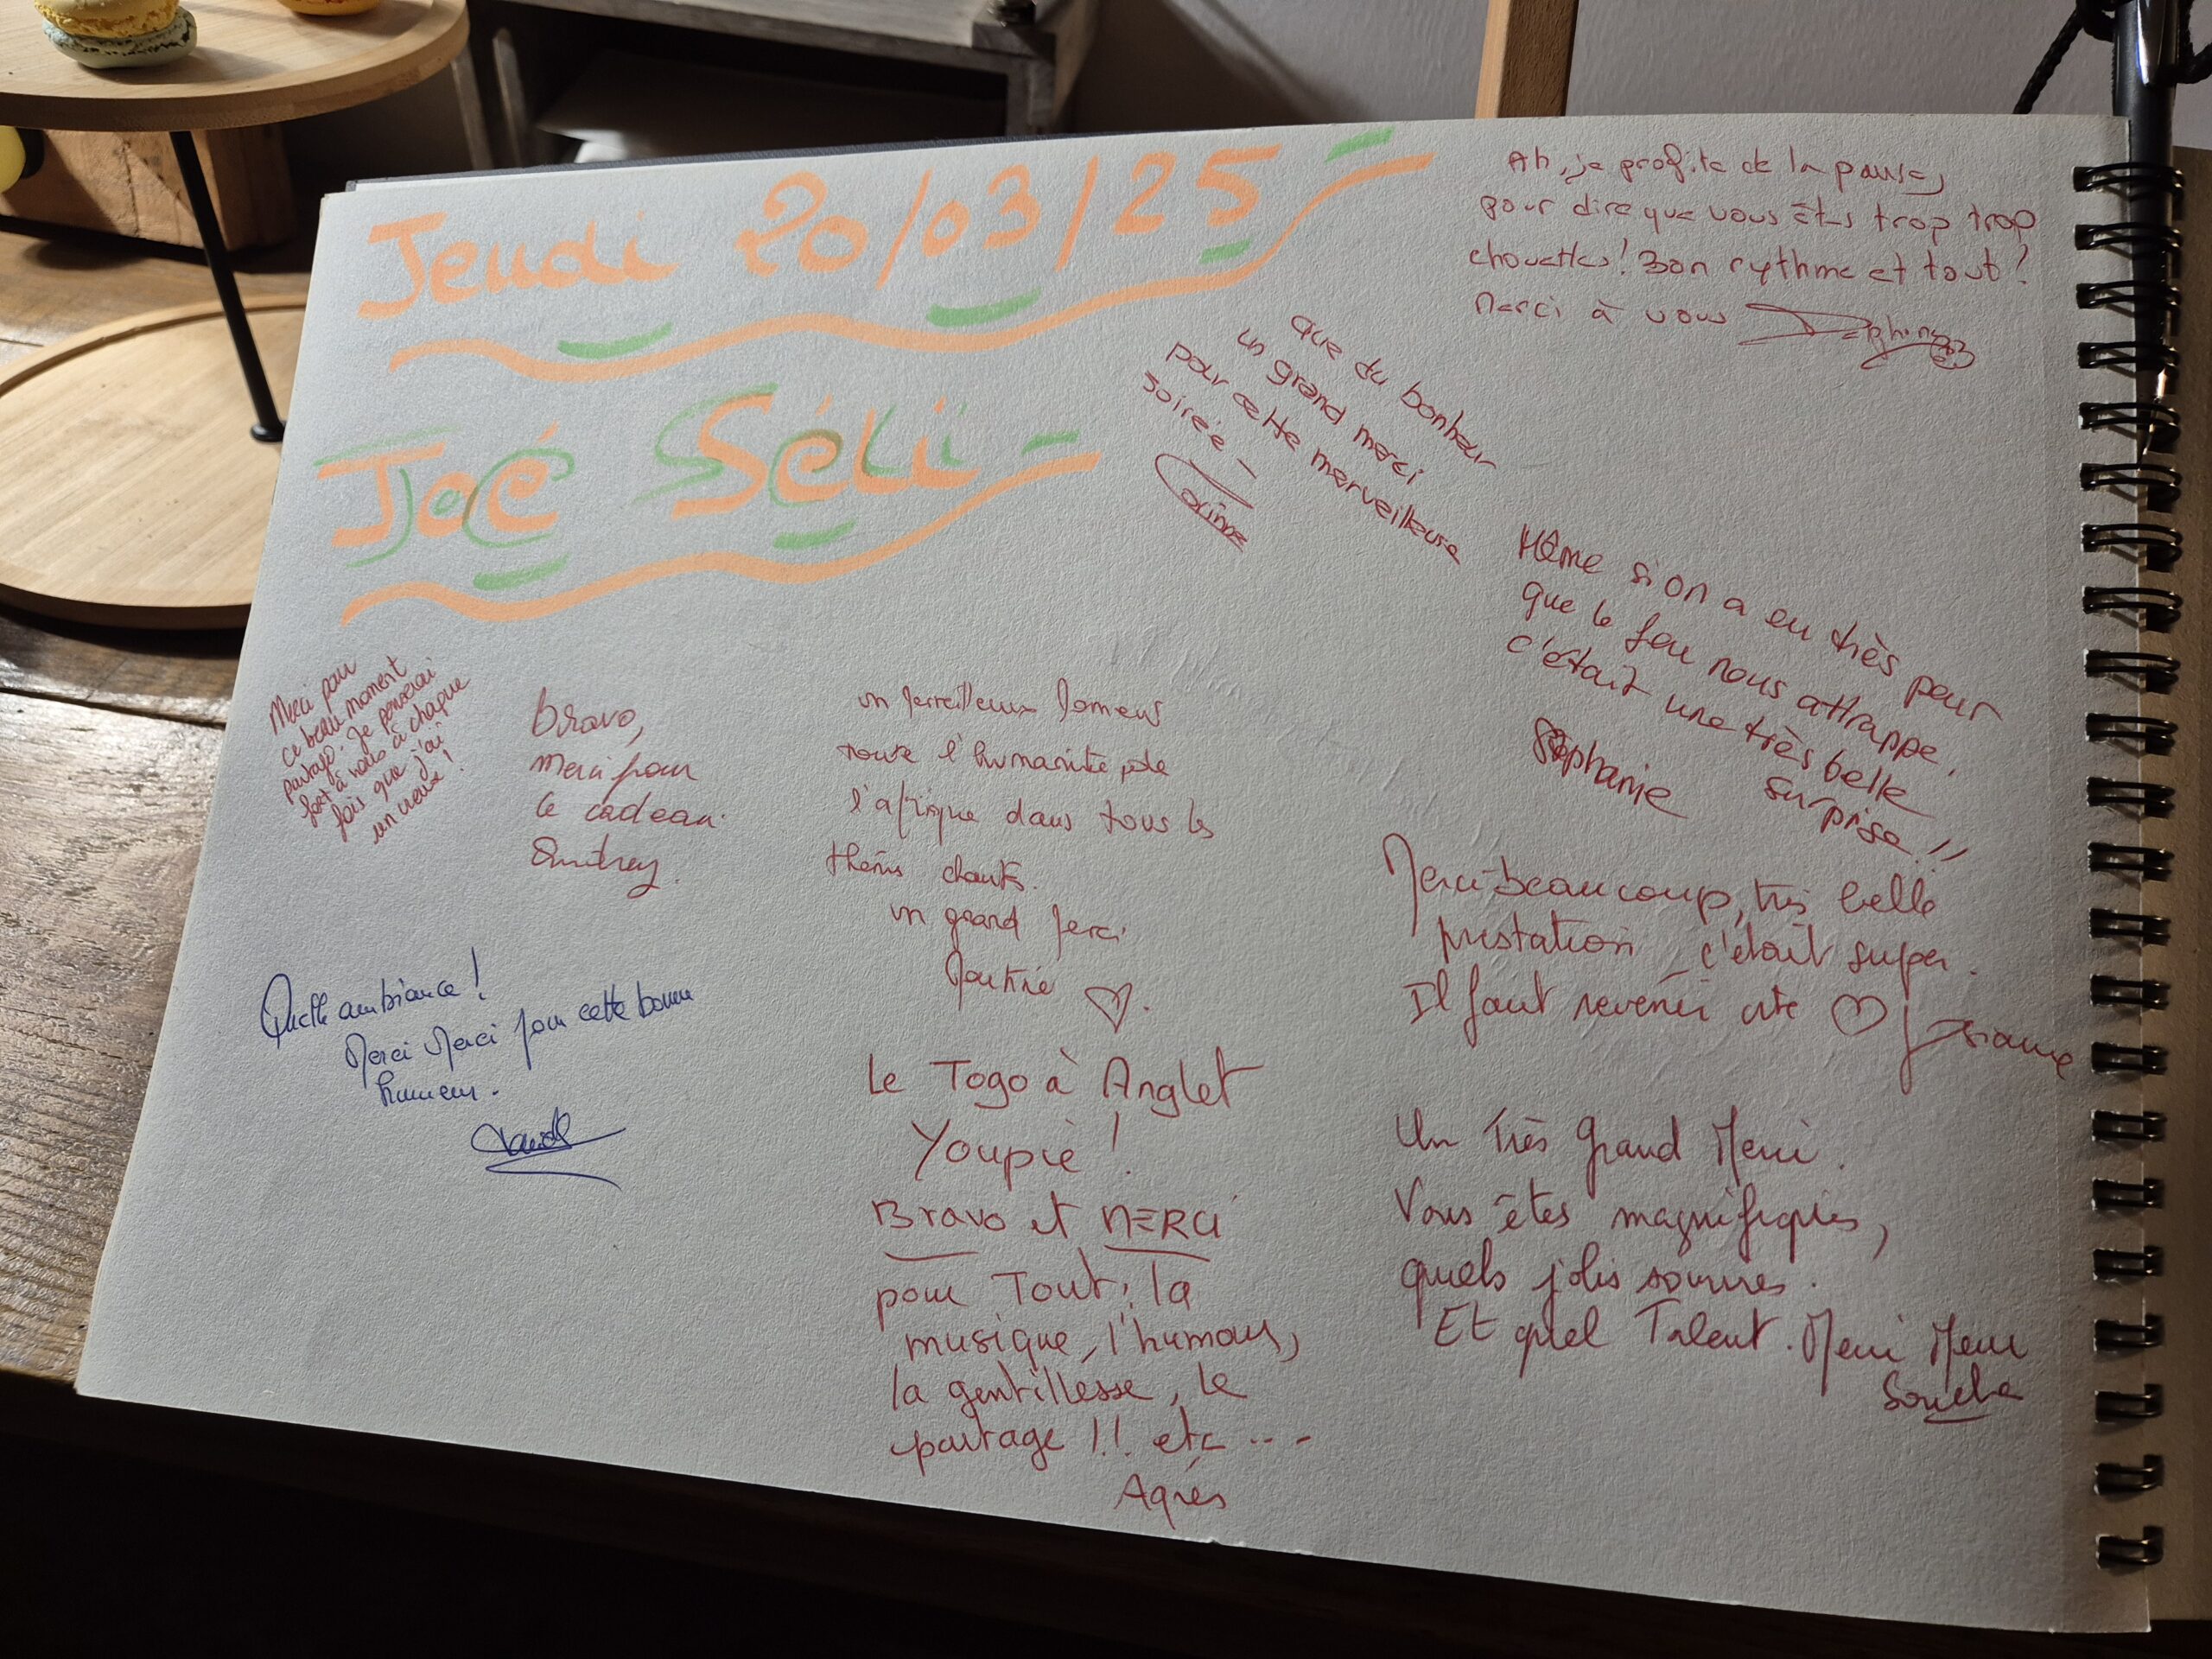 Jeudi 20/03/25
Joé Séli
Ah, je profite de la pause,
pour dire que vous êtes trop trop
chouettes! Bon rythme et tout!
Merci à vous
que du bonheur
un grand merci
pour cette merveilleuse
soirée -
Corinne
Même si on a eu très peur
que le feu nous attrappe,
c'était une très belle
surprise!!
Stéphanie
Merci pour
ce beau moment
partagé. Je penserai
fort à vous à chaque
fois que j'ai
un creux!
bravo,
merci pour
le cadeau.
un merveilleux
l'humanité de
l'afrique dans tous les
chants.
un grand Merci
♡.
Merci beaucoup, très belle
prestation c'était super.
Il faut revenir vite ♡ Josiane
Quelle ambiance!
Merci Merci pour cette bonne
humeur.
Le Togo à Anglet
Youpie!
Bravo et MERCI
pour Tout: la
musique, l'humour,
la gentillesse, le
partage !! etc ---
Agnés
Un Très Grand Merci.
Vous êtes magnifiques,
quels jolis sourires.
Et quel Talent. Merci Merci